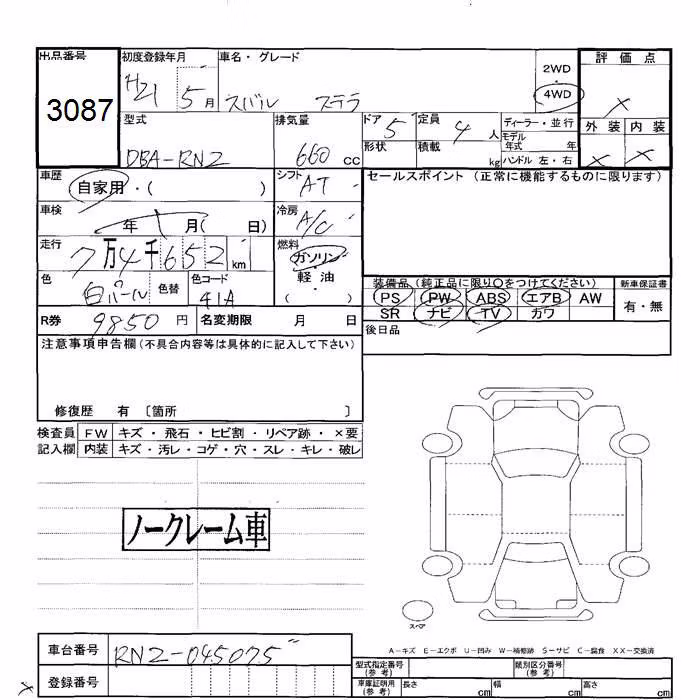 出品番号 初度登録年月 車名・グレード 評価点
3087 H21 5月 スバル ステラ 2WD 4WD ×
型式 排気量 ドア 5 定員 4人 ディーラー・並行 外装 内装
DBA-RN2 660 cc 形状 積載 kg モデル年式 年 ハンドル 左・右 × ×
車歴 自家用・( ) シフト AT セールスポイント (正常に機能するものに限ります)
車検 年 月( 日) 冷房 A/C
走行 7万4千652km 燃料 ガソリン・軽油・( )
色 白パール 色替 色コード 41A
装備品(純正品に限り○をつけてください) 新車保証書
PS PW ABS エアB AW 有・無
SR ナビ TV カワ
R券 9850円 名変期限 月 日 後日品
注意事項申告欄(不具合内容等は具体的に記入して下さい)
修復歴 有 〔箇所 〕
検査員 FW キズ・飛石・ヒビ割・リペア跡・×要
記入欄 内装 キズ・汚レ・コゲ・穴・スレ・キレ・破レ
ノークレーム車
スペア
A-キズ E-エクボ U-凹み W-補修跡 S-サビ C-腐食 XX-交換済
車台番号 RN2-045075
型式指定番号(参考) 類別区分番号(参考)
登録番号 車庫証明用(参考) 長さ cm 幅 cm 高さ cm
×